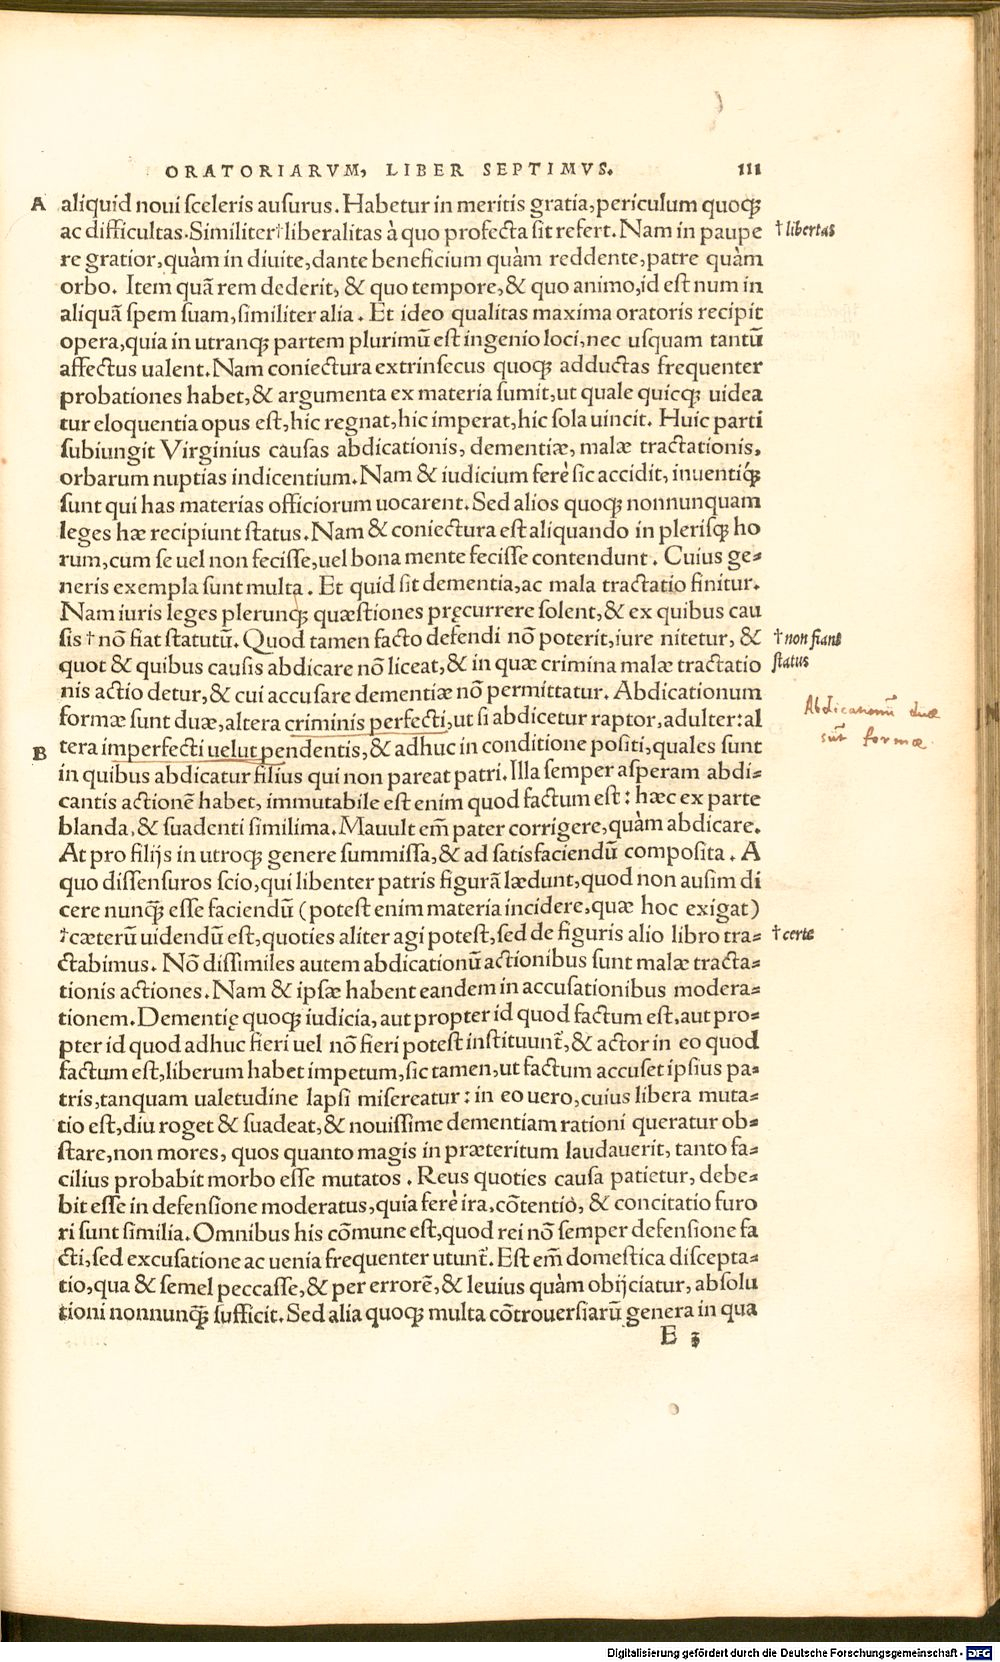 ORATORIARVM, LIBER SEPTIMVS. 111
A aliquid noui sceleris ausurus. Habetur in meritis gratia, periculum quoqꝫ
ac difficultas. Similiter † liberalitas à quo profecta sit refert. Nam in paupe † libertas
re gratior, quàm in diuite, dante beneficium quàm reddente, patre quàm
orbo. Item quã rem dederit, & quo tempore, & quo animo, id est num in
aliquã spem suam, similiter alia. Et ideo qualitas maxima oratoris recipit
opera, quia in utranqꝫ partem plurimũ est ingenio loci, nec usquam tantũ
affectus ualent. Nam coniectura extrinsecus quoqꝫ adductas frequenter
probationes habet, & argumenta ex materia sumit, ut quale quicqꝫ uidea
tur eloquentia opus est, hic regnat, hic imperat, hic sola uincit. Huic parti
subiungit Virginius causas abdicationis, dementiæ, malæ tractationis,
orbarum nuptias indicentium. Nam & iudicium ferè sic accidit, inuentiqꝫ́
sunt qui has materias officiorum uocarent. Sed alios quoqꝫ nonnunquam
leges hæ recipiunt status. Nam & coniectura est aliquando in plerisqꝫ ho
rum, cum se uel non fecisse, uel bona mente fecisse contendunt. Cuius ge-
neris exempla sunt multa. Et quid sit dementia, ac mala tractatio finitur.
Nam iuris leges plerunqꝫ quæstiones pręcurrere solent, & ex quibus cau
sis † nõ fiat statutũ. Quod tamen facto defendi nõ poterit, iure nitetur, & † non fiant
quot & quibus causis abdicare nõ liceat, & in quæ crimina malæ tractatio status
nis actio detur, & cui accusare dementiæ nõ permittatur. Abdicationum
formæ sunt duæ, altera criminis perfecti, ut si abdicetur raptor, adulter: al Abdicationũ duæ
B tera imperfecti uelut pendentis, & adhuc in conditione positi, quales sunt sũt formæ.
in quibus abdicatur filius qui non pareat patri. Illa semper asperam abdi-
cantis actionẽ habet, immutabile est enim quod factum est: hæc ex parte
blanda, & suadenti similima. Mauult em̃ pater corrigere, quàm abdicare.
At pro filijs in utroqꝫ genere summissa, & ad satisfaciendũ composita. A
quo dissensuros scio, qui libenter patris figurã lædunt, quod non ausim di
cere nunq̃ꝫ esse faciendũ (potest enim materia incidere, quæ hoc exigat)
† cæterũ uidendũ est, quoties aliter agi potest, sed de figuris alio libro tra- † certe
ctabimus. Nõ dissimiles autem abdicationũ actionibus sunt malæ tracta-
tionis actiones. Nam & ipsæ habent eandem in accusationibus modera-
tionem. Dementię quoqꝫ iudicia, aut propter id quod factum est, aut pro-
pter id quod adhuc fieri uel nõ fieri potest instituunt̃, & actor in eo quod
factum est, liberum habet impetum, sic tamen, ut factum accuset ipsius pa-
tris, tanquam ualetudine lapsi misereatur: in eo uero, cuius libera muta-
tio est, diu roget & suadeat, & nouissime dementiam rationi queratur ob-
stare, non mores, quos quanto magis in præteritum laudauerit, tanto fa-
cilius probabit morbo esse mutatos. Reus quoties causa patietur, debe-
bit esse in defensione moderatus, quia ferè ira, cõtentio, & concitatio furo
ri sunt similia. Omnibus his cõmune est, quod rei nõ semper defensione fa
cti, sed excusatione ac uenia frequenter utunt̃. Est em̃ domestica discepta-
tio, qua & semel peccasse, & per errorẽ, & leuius quàm obijciatur, absolu
tioni nonnunq̃ꝫ sufficit. Sed alia quoqꝫ multa cõtrouersiarũ genera in qua
E 3
Digitalisierung gefördert durch die Deutsche Forschungsgemeinschaft - DFG